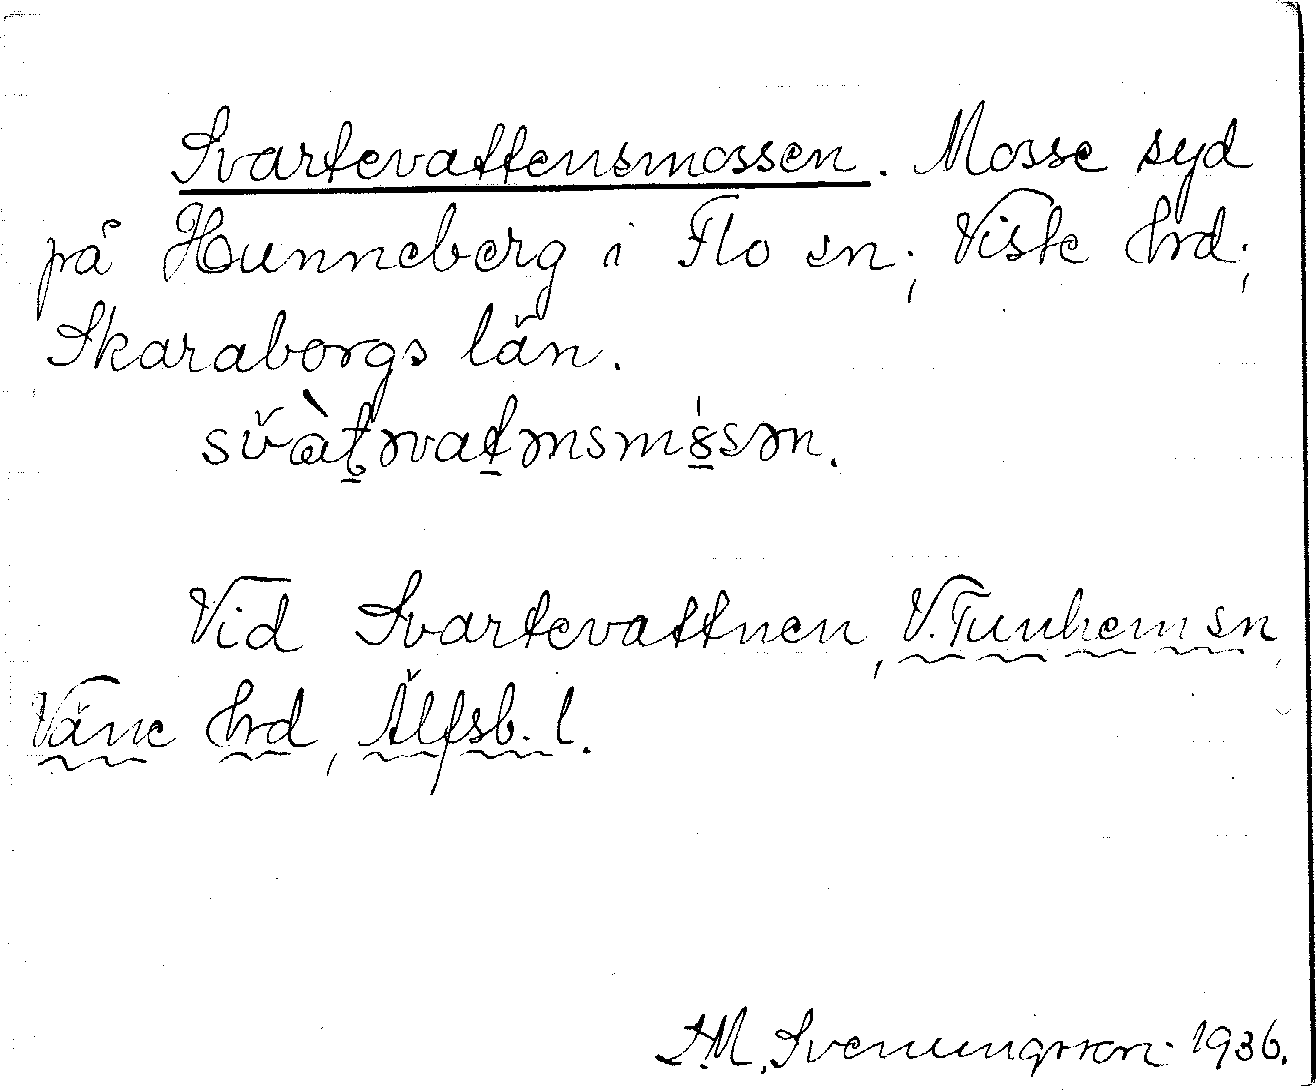 Svartevattensmossen. Mosse syd
på Hunneberg i Flo sn; Viste hrd;
Skaraborgs län.
Vid Svartevattnen, V. Tunhem sn,
Väne hrd, Älfsb. l.
Svenungsson 1936.